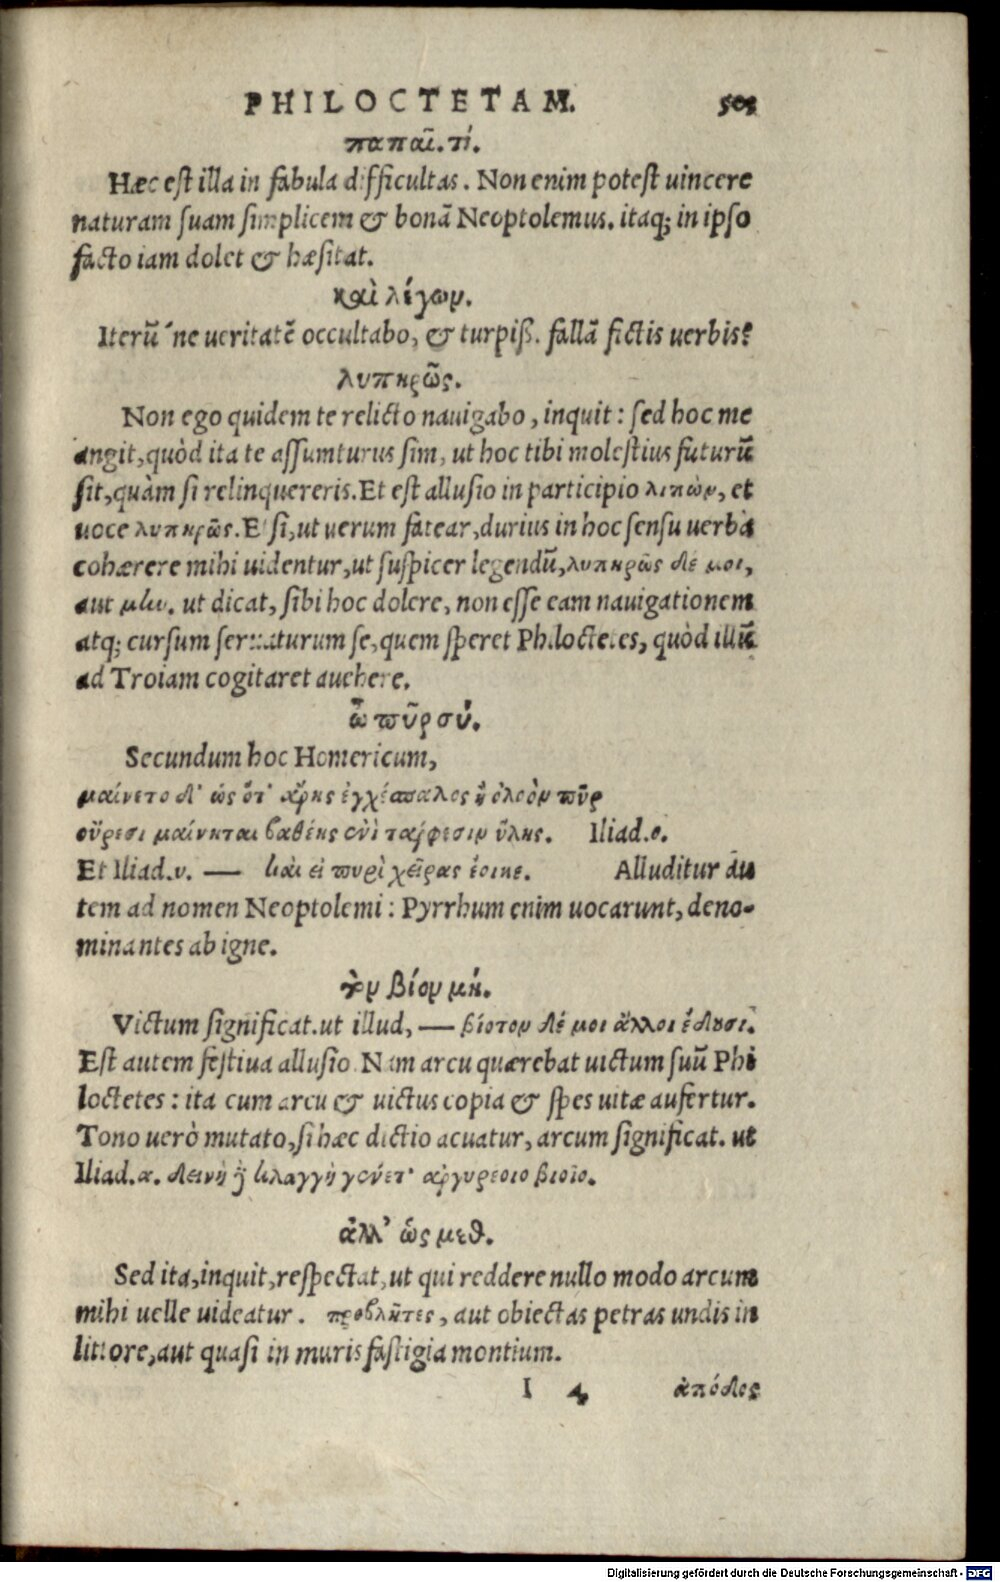 PHILOCTETAM. 505
παπαῖ. τί.
Hæc est illa in fabula difficultas. Non enim potest uincere
naturam suam simplicem & bonā Neoptolemus. itaq; in ipso
facto iam dolet & hæsitat.
καὶ λέγων.
Iterū´ne ueritatē occultabo, & turpiß. fallā fictis uerbis?
λυπηρῶς.
Non ego quidem te relicto nauigabo, inquit: sed hoc me
angit, quòd ita te assumturus sim, ut hoc tibi molestius futurū
sit, quàm si relinquereris. Et est allusio in participio λιπὼν, et
uoce λυπηρῶς. Etsi, ut uerum fatear, durius in hoc sensu uerba
cohærere mihi uidentur, ut suspicer legendū, λυπηρῶς δέ μοι,
aut μὲν. ut dicat, sibi hoc dolere, non esse eam nauigationem
atq; cursum seruaturum se, quem speret Philoctetes, quòd illū
ad Troiam cogitaret auehere.
ὦ πῦρ σύ.
Secundum hoc Homericum,
μαίνετο δ' ὡς ὅτ' ἄρης ἐγχέσπαλος ἢ ὀλοὸν πῦρ
οὔρεσι μαίνηται βαθέης ἐνὶ τάρφεσιν ὕλης. Iliad.ο.
Et Iliad.υ. — καὶ εἰ πυρὶ χεῖρας ἔοικε. Alluditur au
tem ad nomen Neoptolemi: Pyrrhum enim uocarunt, deno-
minantes ab igne.
τὸν βίον μή.
Victum significat. ut illud, — βίοτον δέ μοι ἄλλοι ἔδουσι.
Est autem festiua allusio. Nam arcu quærebat uictum suū Phi
loctetes: ita cum arcu & uictus copia & spes uitæ aufertur.
Tono uerò mutato, si hæc dictio acuatur, arcum significat. ut
Iliad.α. δεινὴ δὲ κλαγγὴ γένετ' ἀργυρέοιο βιοῖο.
ἀλλ' ὡς μεθ.
Sed ita, inquit, respectat, ut qui reddere nullo modo arcum
mihi uelle uideatur. προβλῆτες, aut obiectas petras undis in
littore, aut quasi in muris fastigia montium.
I 4 ἀπόδος
Digitalisierung gefördert durch die Deutsche Forschungsgemeinschaft - DFG